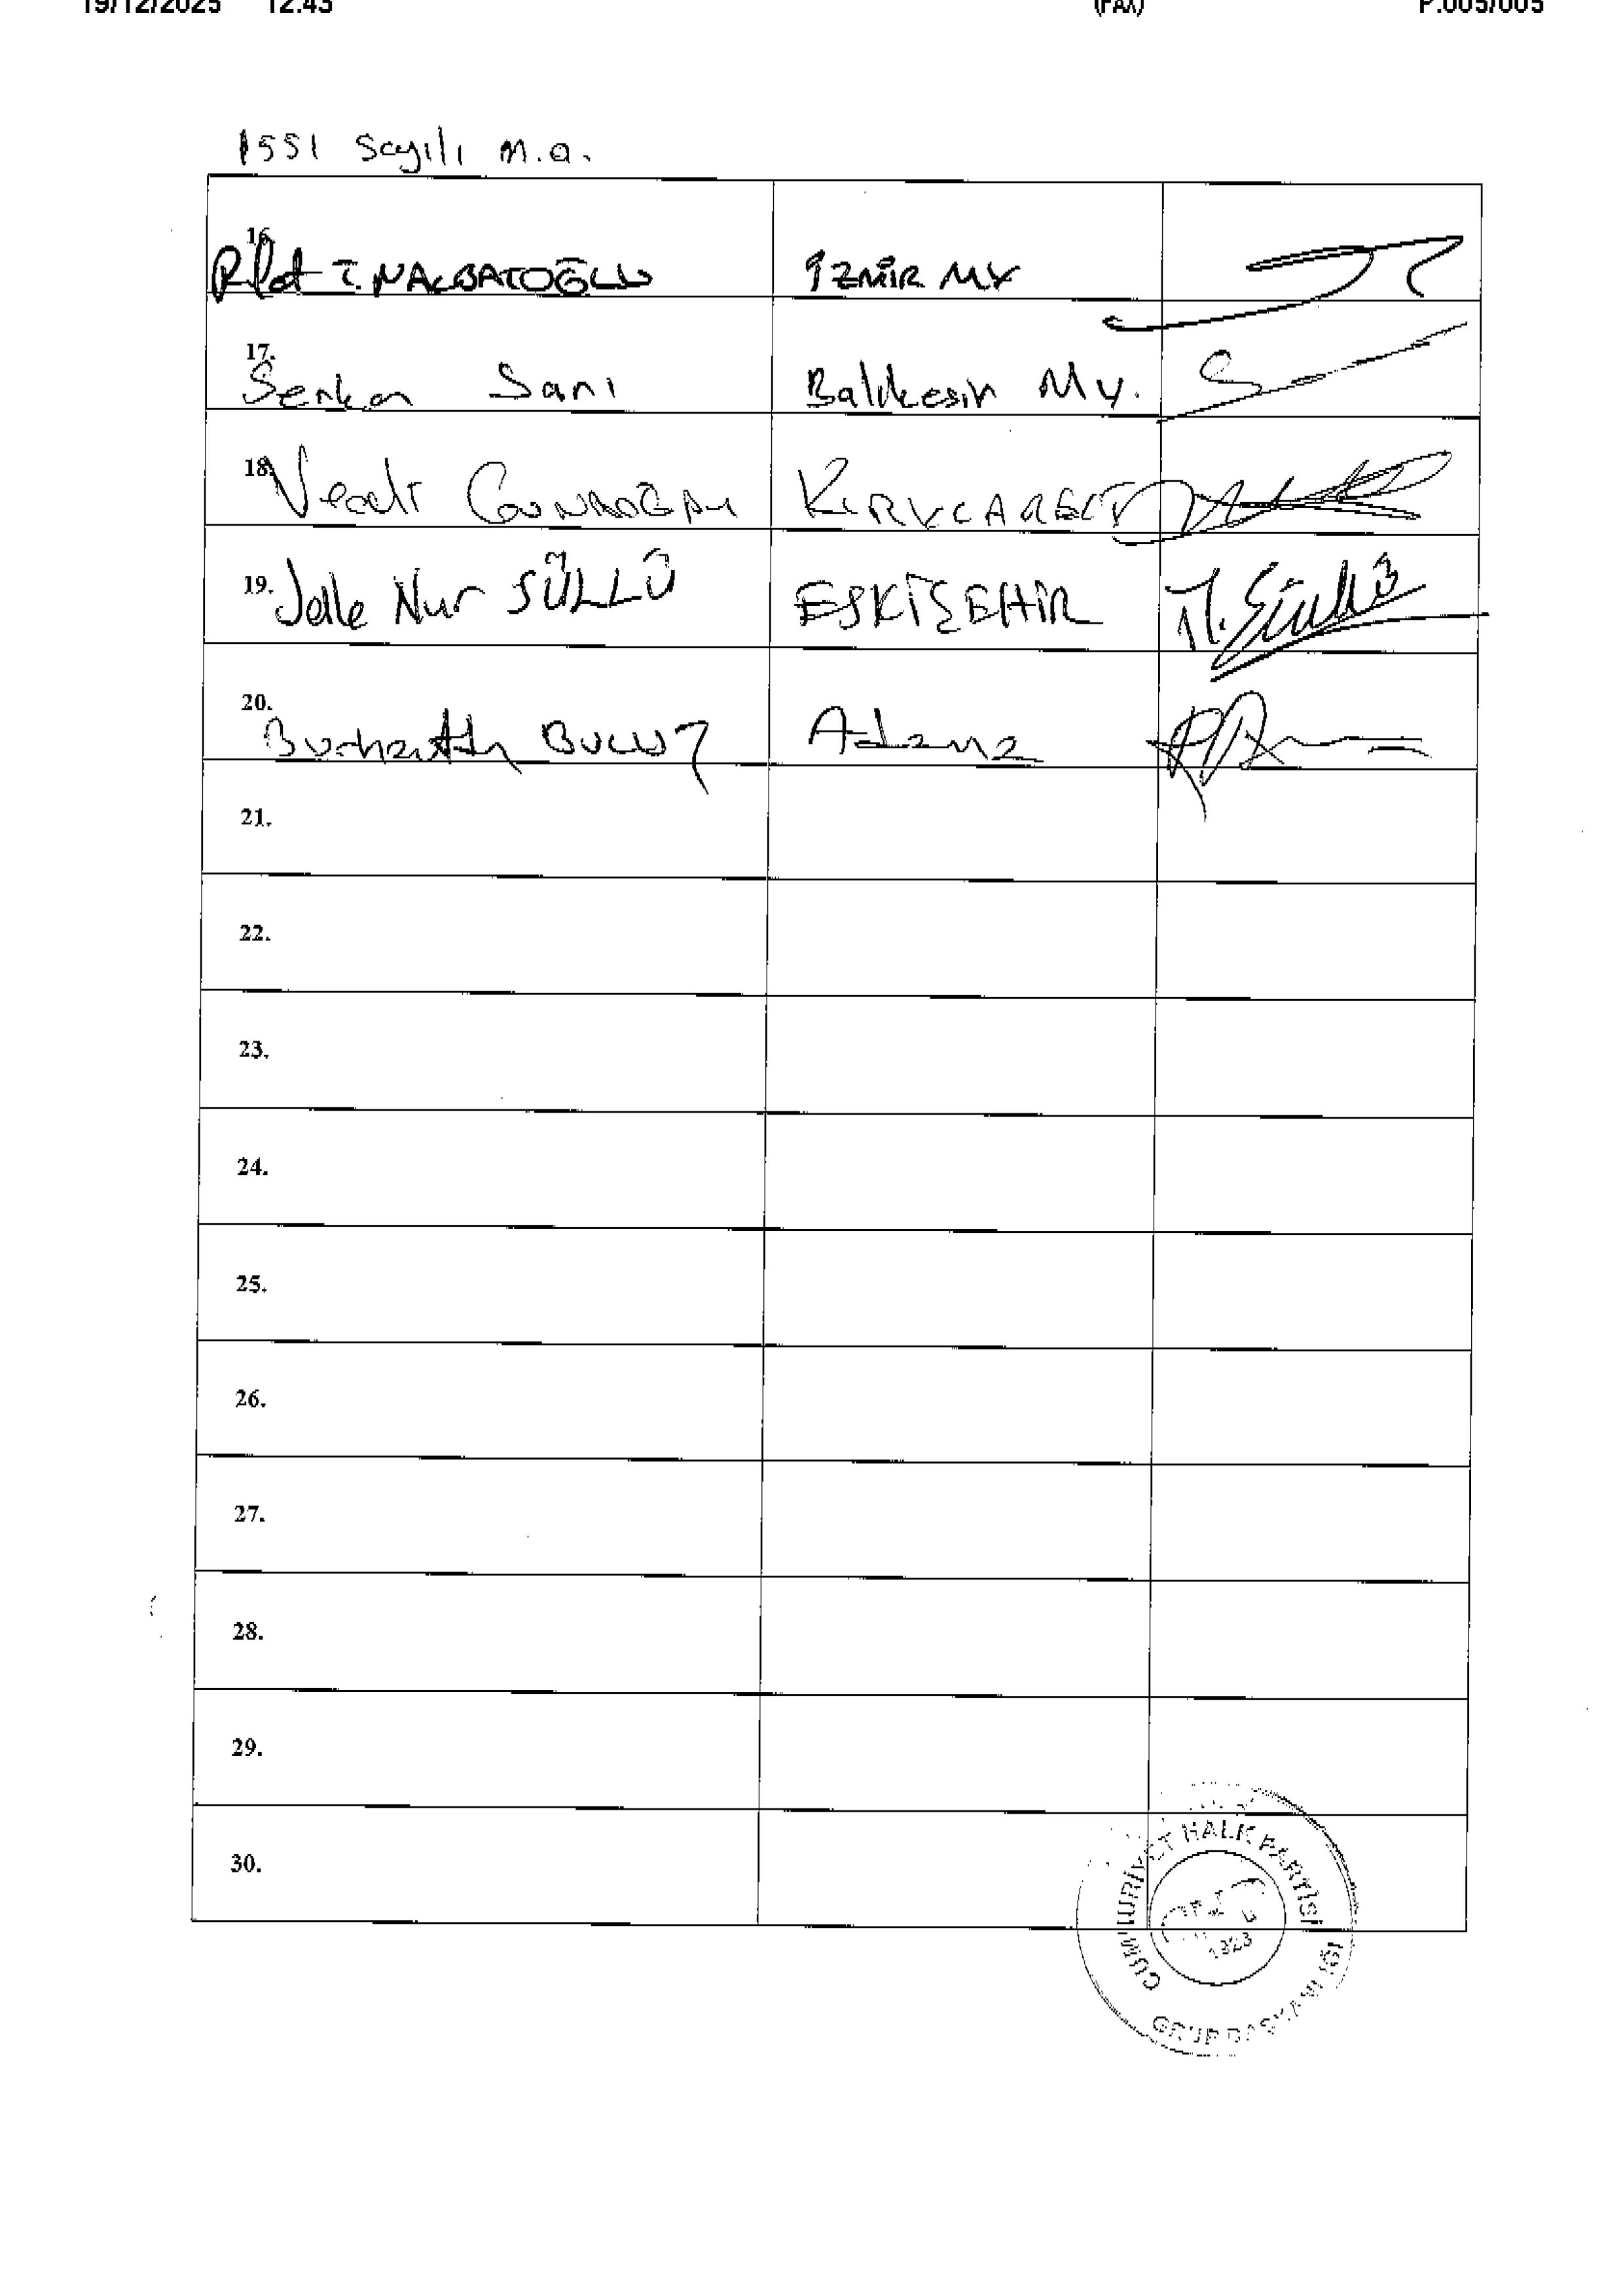 19/12/2025 12:43 (FAX) P.005/005
1551 Sayılı M.Ö.
16.
Rıfat T. NALBATOĞLU İZMİR MV
17.
Serkan Sarı Balıkesir Mv.
18. Vecdi GÜNDOĞDU KIRKLARELİ
19. Jale Nur SÜLLÜ ESKİŞEHİR N. Süllü
20.
Burhanettin BULUT Adana
21.
22.
23.
24.
25.
26.
27.
28.
29.
30.
CUMHURİYET HALK PARTİSİ
1923
GRUP BAŞKANLIĞI